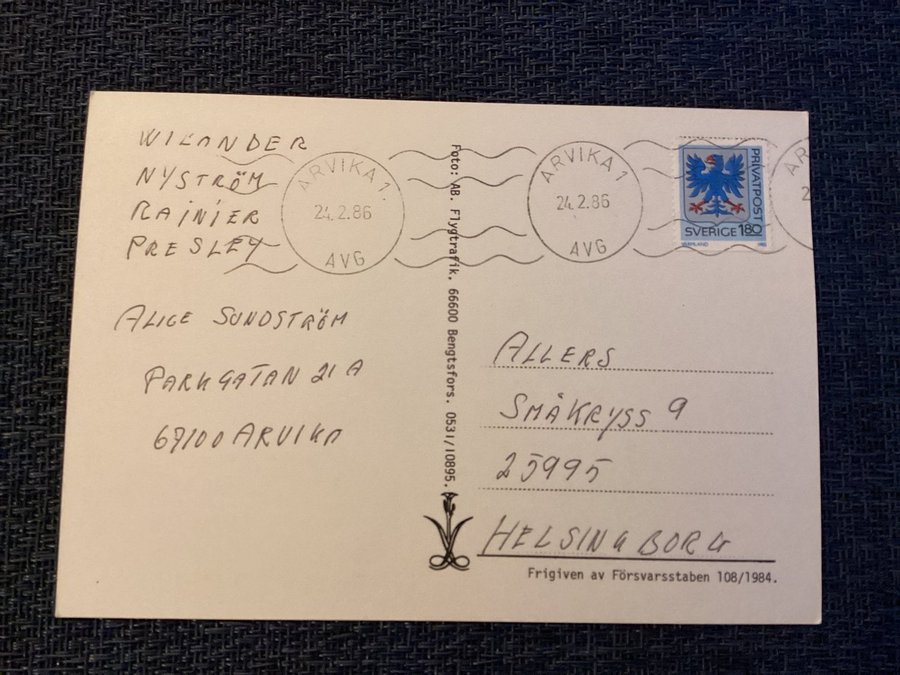 WILANDER
NYSTRÖM
RAINIER
PRESLEY
ALICE SUNDSTRÖM
PARKGATAN 21 A
67100 ARVIKA
ARVIKA 1
24.2.86
AVG
Foto: AB. Flygtrafik. 66600 Bengtsfors. 0531/10895.
ARVIKA 1
24.2.86
AVG
PRIVATPOST
SVERIGE 180
VÄRMLAND
AR
2
ALLERS
SMÅKRYSS 9
25995
HELSINGBORG
Frigiven av Försvarsstaben 108/1984.